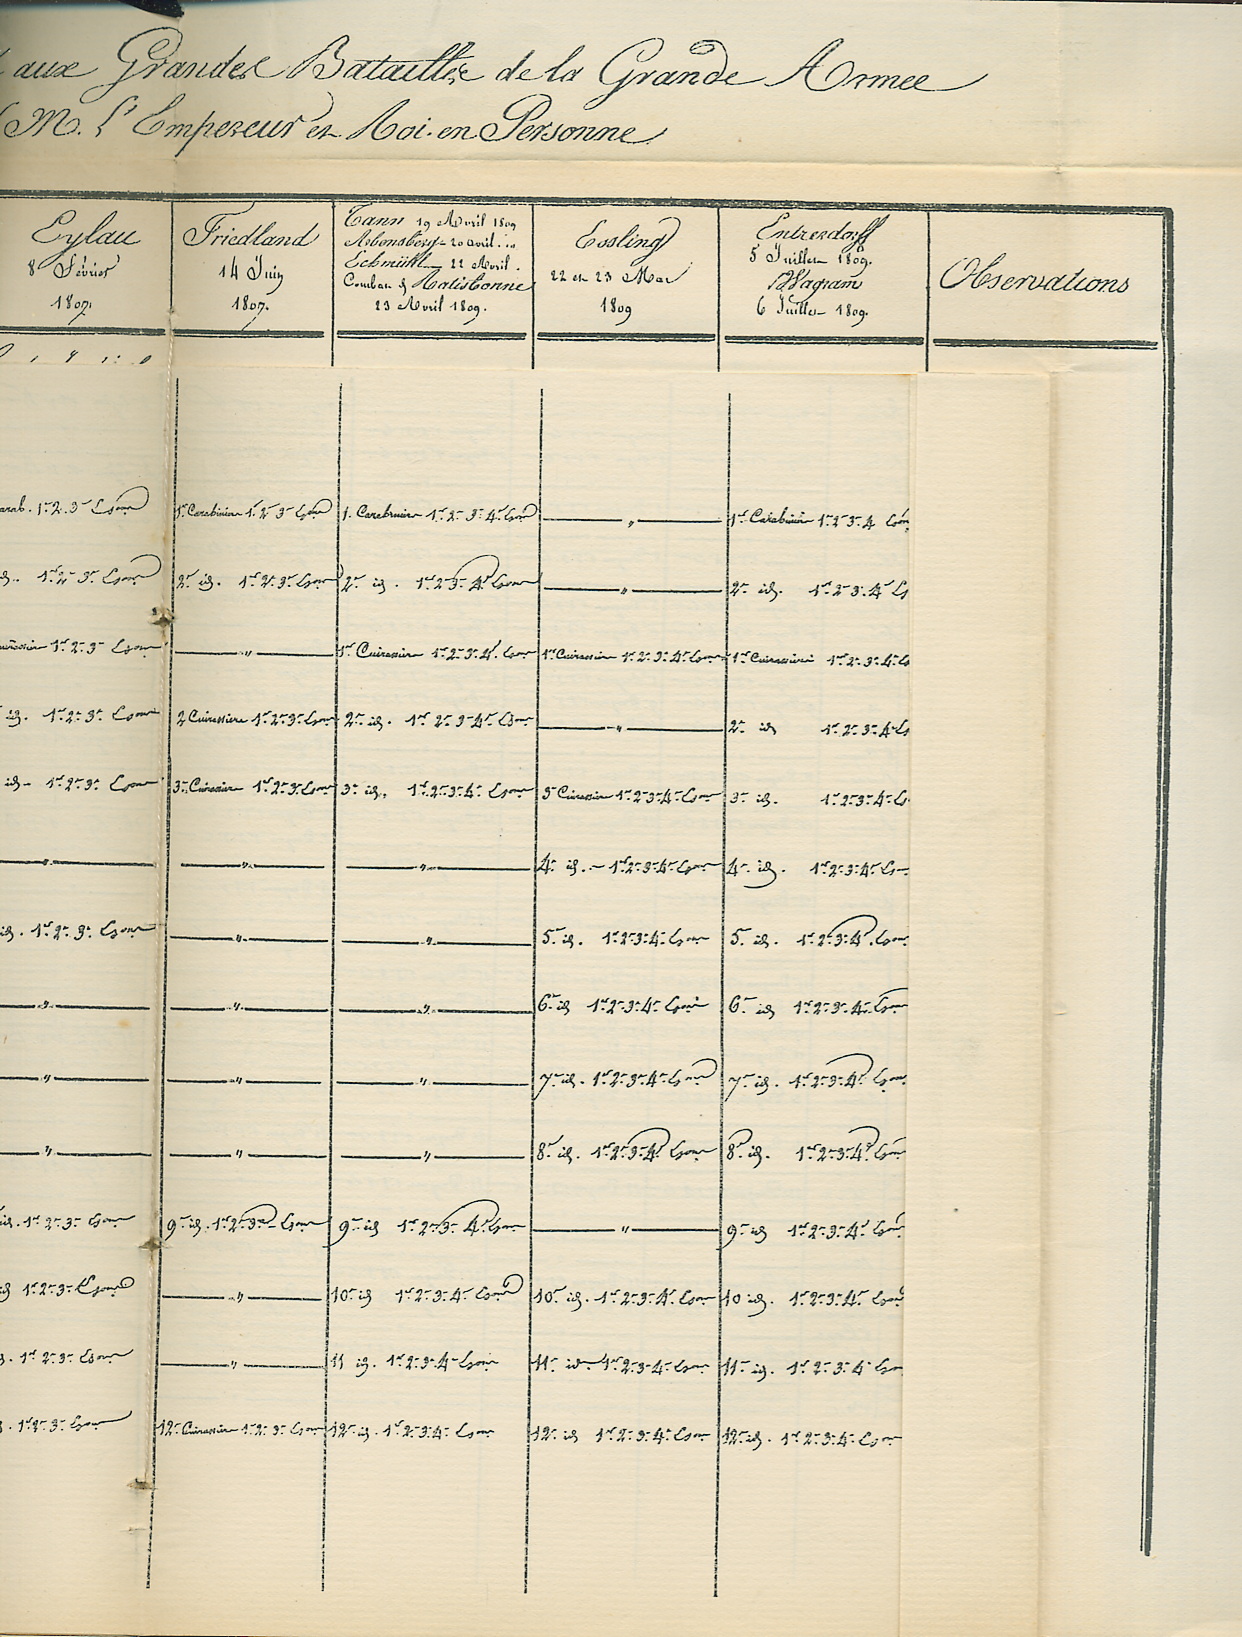 aux Grandes Batailles de la Grande Armee
M. l'Empereur et Roi en Personne
Eylau
8 Février
1807.
Friedland
14 Juin
1807.
Tann 19 Avril 1809
Abensberg - 20 avril. id
Eckmühl 22 Avril.
Combat de Ratisbonne
23 Avril 1809.
Essling
22 et 23 Mai
1809
Entzersdorff
5 Juillet 1809.
Wagram
6 Juillet 1809.
Observations
arab. 1er 2e 3e Escon 1er Carabiniers 1er 2e 3e Escon 1. Carabiniers 1er 2e 3e 4e Escon " 1er Carabiniers 1er 2e 3e 4 Escon
d. 1er 2e 3e Escon 2e id. 1er 2e 3e Escon 2e id. 1er 2e 3e 4e Escon " 2e id. 1er 2e 3e 4e Es
uirassiers 1er 2e 3e Escon " 1er Cuirassiers 1er 2e 3e 4e Escon 1er Cuirassiers 1er 2e 3e 4e Escon 1er Cuirassiers 1er 2e 3e 4e Es
id. 1er 2e 3e Escon 2 Cuirassiers 1er 2e 3e Escon 2e id. 1er 2e 3e 4e Escon " 2e id 1er 2e 3e 4e Es
id. 1er 2e 3e Escon 3e Cuirassiers 1er 2e 3e Escon 3e id. 1er 2e 3e 4e Escon 3e Cuirassiers 1er 2e 3e 4e Escon 3e id. 1er 2e 3e 4e Es
" " " 4e id. 1er 2e 3e 4e Escon 4e id. 1er 2e 3e 4e Es
id. 1er 2e 3e Escon " " 5e id. 1er 2e 3e 4e Escon 5e id. 1er 2e 3e 4e Escon
" " " 6e id 1er 2e 3e 4e Escon 6e id 1er 2e 3e 4e Escon
" " " 7e id. 1er 2e 3e 4e Escon 7e id. 1er 2e 3e 4e Escon
" " " 8e id. 1er 2e 3e 4e Escon 8e id. 1er 2e 3e 4e Escon
id. 1er 2e 3e Escon 9e id. 1er 2e 3e Escon 9e id 1er 2e 3e 4e Escon " 9e id 1er 2e 3e 4e Escon
id 1er 2e 3e Escon " 10e id 1er 2e 3e 4e Escon 10e id. 1er 2e 3e 4e Escon 10 id. 1er 2e 3e 4e Escon
d. 1er 2e 3e Escon " 11 id. 1er 2e 3e 4e Escon 11e id 1er 2e 3e 4e Escon 11e id. 1er 2e 3e 4e Escon
d. 1er 2e 3e Escon 12e Cuirassiers 1er 2e 3e Escon 12e id. 1er 2e 3e 4e Escon 12e id 1er 2e 3e 4e Escon 12e id. 1er 2e 3e 4e Escon